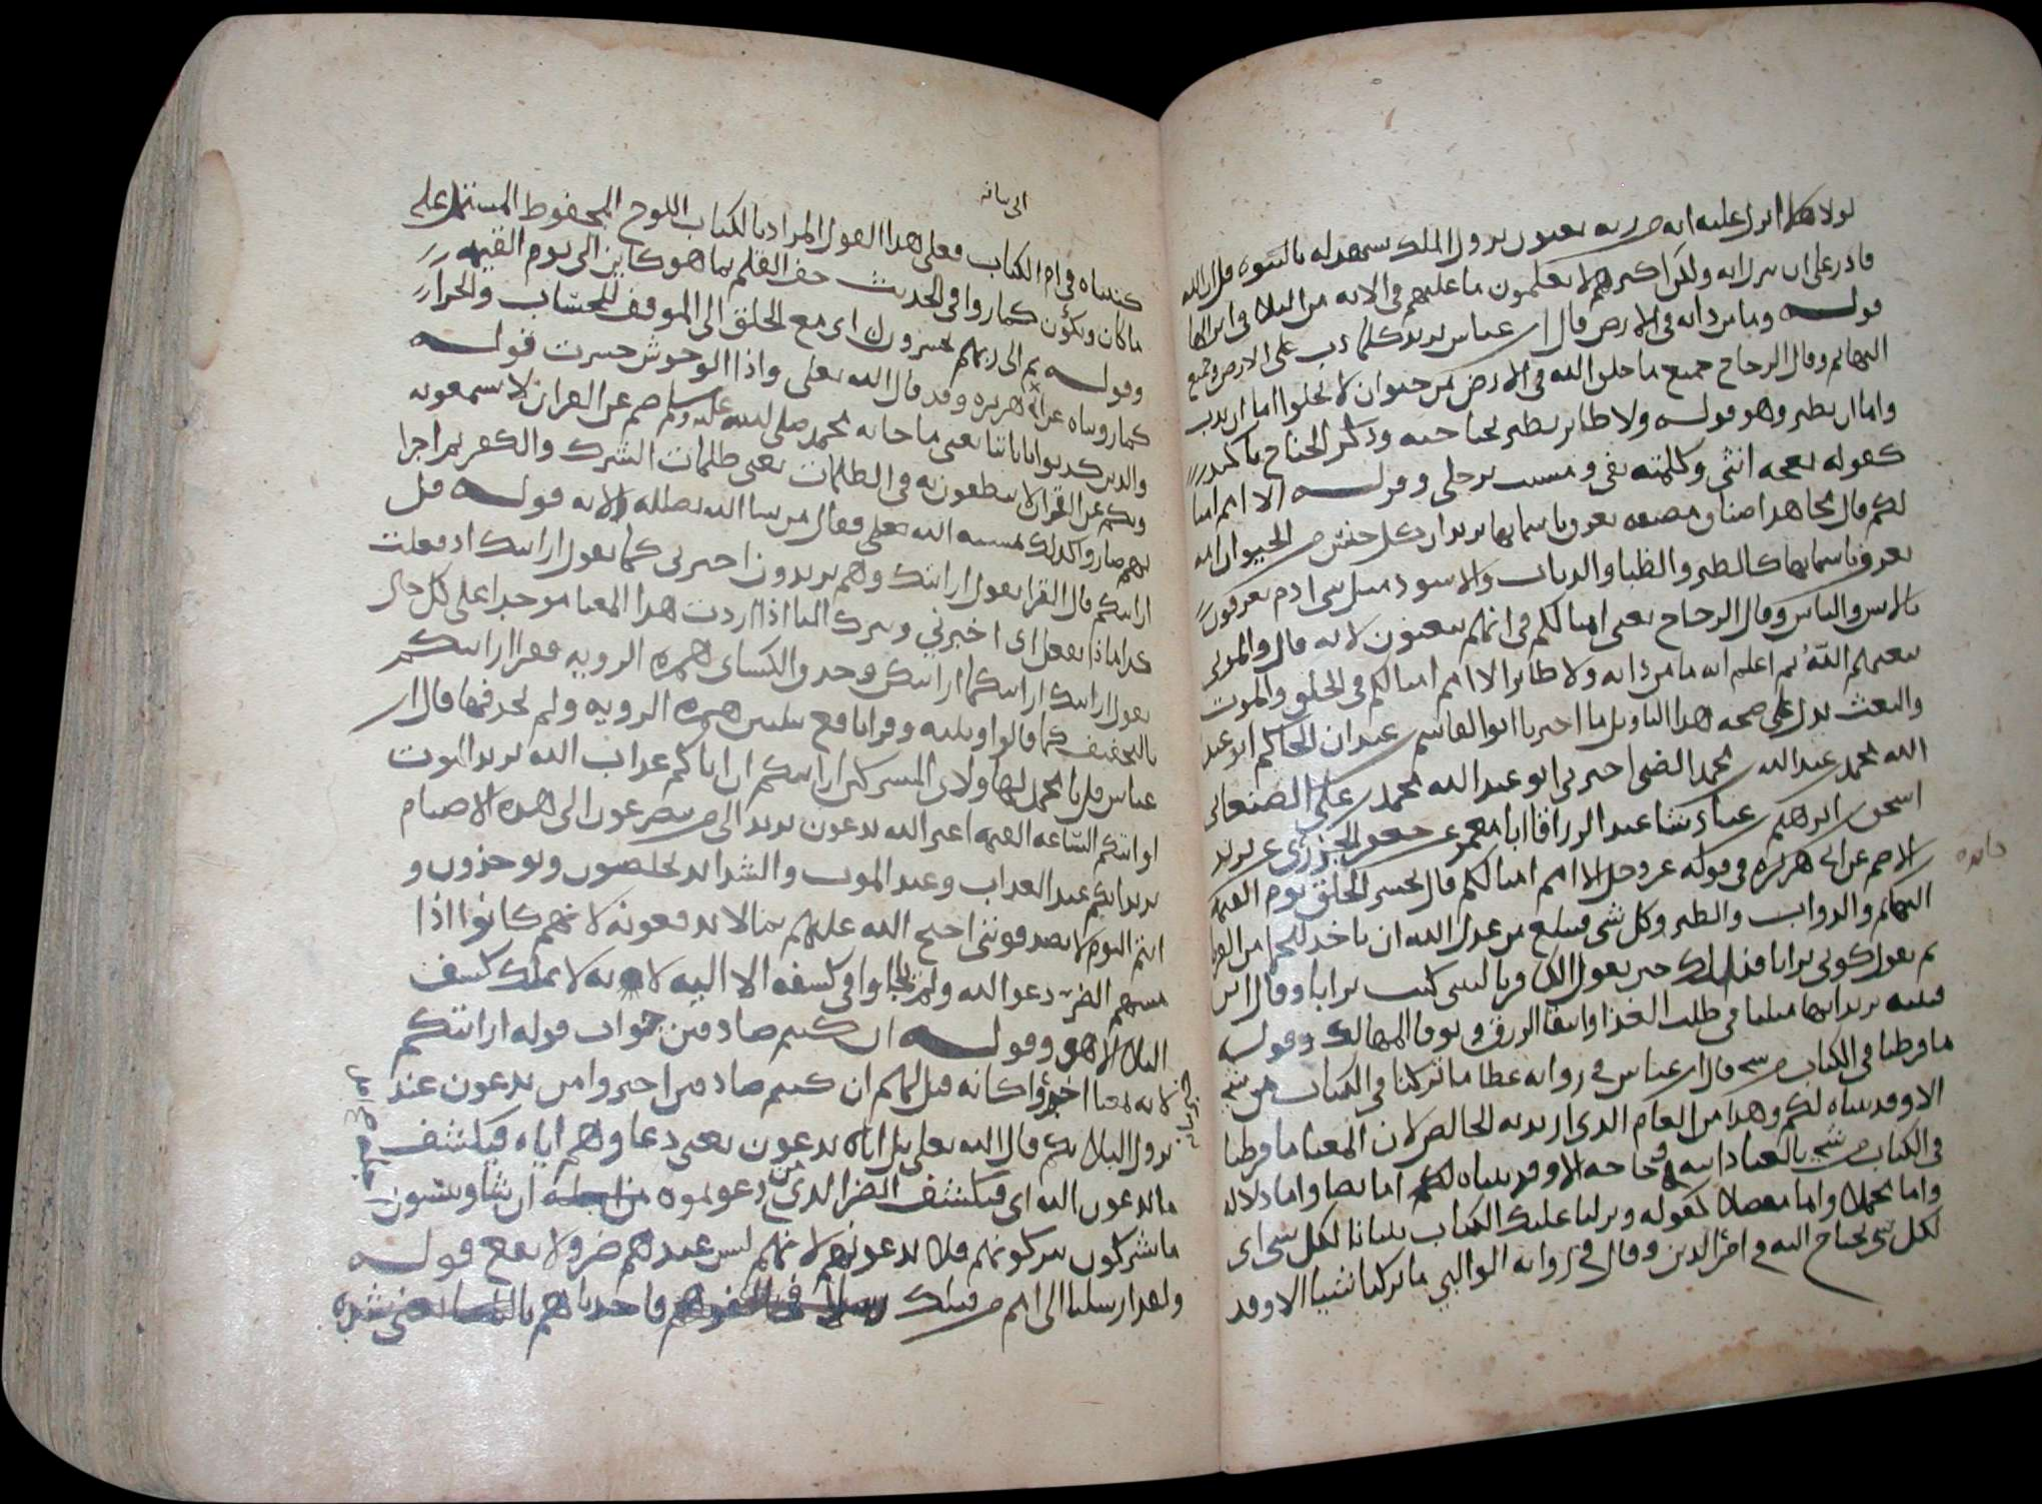 لولا هلا انزل عليه ايه من ربه يعنون نزول الملك يشهد له بالنبوه قل ان الله
قادر على ان ينزل ايه ولكن اكثرهم لا يعلمون ما عليهم في الايه من البلا في انزالها
قوله وما من دابه في الارض قال ابن عباس يريد كلما دب على الارض وجميع
البهايم وقال الزجاج جميع ما خلق الله في الارض من حيوان لا يخلوا اما ان يدب
واما ان يطير وهو قوله ولا طاير يطير بجناحيه وذكر الجناح تاكيد
كقوله نعجه انثى وكلمته بفي ومشيت برجلي وقوله الا امم امثا
لكم قال مجاهد اصناف مصنفه تعرف باسمايها يريد ان كل جنس من الحيوان امه
تعرف باسمايها كالطير والظبا والدياب والاسود مثل بني ادم يعرفون
بالانس والناس وقال الزجاج يعني امثالكم في انهم يبعثون لانه قال والموتى
يبعثهم الله ثم اعلم انه ما من دابه ولا طاير الا امم امثالكم في الخلق والموت
والبعث يدل على صحه هذا التاويل ما اخبرنا ابو القاسم بن عبدان الحاكم ابو عبد
الله محمد بن عبد الله بن محمد الضبي اخبرني ابو عبد الله محمد بن علي الصنعاني
اسحق بن ابرهيم بن عباد ثنا عبد الرزاق انا معمر عن جعفر الجزري عن يزيد
بن الاصم عن ابي هريره في قوله عز وجل الا امم امثالكم قال يحشر الخلق يوم القيمه
البهايم والدواب والطير وكل شي فيبلغ من عدل الله ان ياخذ للجما من القرنا
ثم يقول كوني ترابا فذلك حين يقول الكافر يا ليتني كنت ترابا وقال ابن
قتيبه يريد انها مثلنا في طلب الغذا وابتغا الرزق وتوقا المهالك وقوله
ما فرطنا في الكتاب من شي قال ابن عباس في روايه عطا ما تركنا في الكتاب من شي
الا وقد بيناه لكم وهذا من العام الذي اريد به الخاص لان المعنا ما فرطنا
في الكتاب من شي بالعباد اليه حاجه الا وقد بيناه لكم اما نصا واما دلاله
واما مجملا واما مفصلا كقوله ونزلنا عليك الكتاب تبيانا لكل شي اي
لكل شي يحتاج اليه في امر الدين وقال في روايه الوالبي ما تركنا شيا الا وقد
كتبناه في ام الكتاب فعلى هذا القول المراد بالكتاب اللوح المحفوظ المشتمل على
ما كان ويكون كما روا في الحديث جف القلم بما هو كاين الى يوم القيمه
وقوله ثم الى ربهم يحشرون اي مع الخلق الى الموقف للحساب والجزا
كما رويناه عن ابي هريره وقد قال الله تعلى واذا الوحوش حشرت قوله
والذين كذبوا باياتنا يعني ما جا به محمد صلى الله عليه وسلم صم عن القران لا يسمعونه
وبكم عن القران لا ينطقون به في الظلمات يعني ظلمات الشرك والكفر ثم اخبرا
نهم صاروا كذلك بمشيه الله تعلى فقال من يشا الله يضلله الايه قوله قل
ارايتكم قال الفرا يقول ارايتك وهم يريدون اخبرني كما يقول ارايتك ان فعلت
كذا ماذا تفعل اي اخبرني وتترك التا اذا اردت هذا المعنا موحدا على كل حال
يقول ارايتك ارايتكما ارايتكن وحذف الكساى همزه الرويه فقرا ارايتكم
بالتخفيف كما قالوا ويلمه وقرا نافع بتليين همزه الرويه ولم يحذفها قال ابن
عباس قل يا محمد لهاولاي المشركين ارايتكم ان اتاكم عذاب الله يريد الموت
او اتتكم الساعه القيمه اغير الله تدعون يريد الى من تتضرعون الى هذه الاصنام
تريد انكم عند العذاب وعند الموت والشدايد تخلصون وتوحدون و
انتم اليوم لا تصدقونني احتج الله عليهم بما لا يدفعونه لانهم كانوا اذا
مسهم الضر دعوا الله ولم يلجاوا في كشفه الا اليه لانه لا يملك كشف
البلا الا هو وقوله ان كنتم صادقين جواب قوله ارايتكم
لانه بمعنا اخبروا كانه قيل لهم ان كنتم صادقين اخبروا من تدعون عند
نزول البلا بكم قال الله تعلى بل اياه تدعون يعني دعاوهم اياه فيكشف
ما تدعون اليه اي فيكشف الضر الذي من دعوتموه ان شا وتنسون
ما تشركون تتركونهم فلا تدعونهم لانهم ليس عندهم ضر ولا نفع قوله
ولقد ارسلنا الى امم من قبلك رسلا فاخذناهم